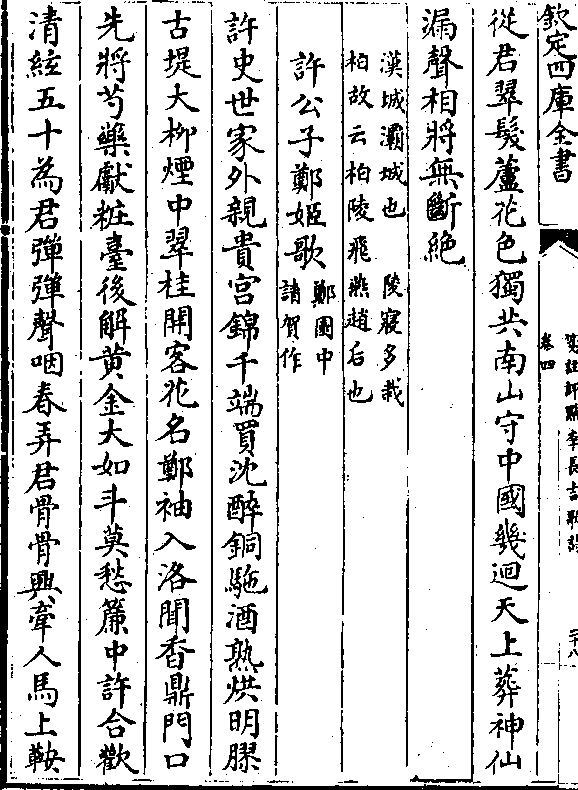 欽定四庫全書
箋註評點李長吉歌詩
卷四
二十八
從君翠髮蘆花色獨共南山守中國幾迴天上葬神仙
漏聲相將無斷絶
漢城灞城也 陵寢多栽
柏故云柏陵飛燕趙后也
許公子鄭姬歌
鄭園中
請賀作
許史世家外親貴宫錦千端買沈醉銅駞酒熟烘明膠
古堤大柳煙中翠桂開客花名鄭袖入洛聞香鼎門口
先將芍藥獻粧臺後解黄金大如斗莫愁簾中許合歡
清絃五十為君彈彈聲咽春弄君骨骨興牽人馬上鞍